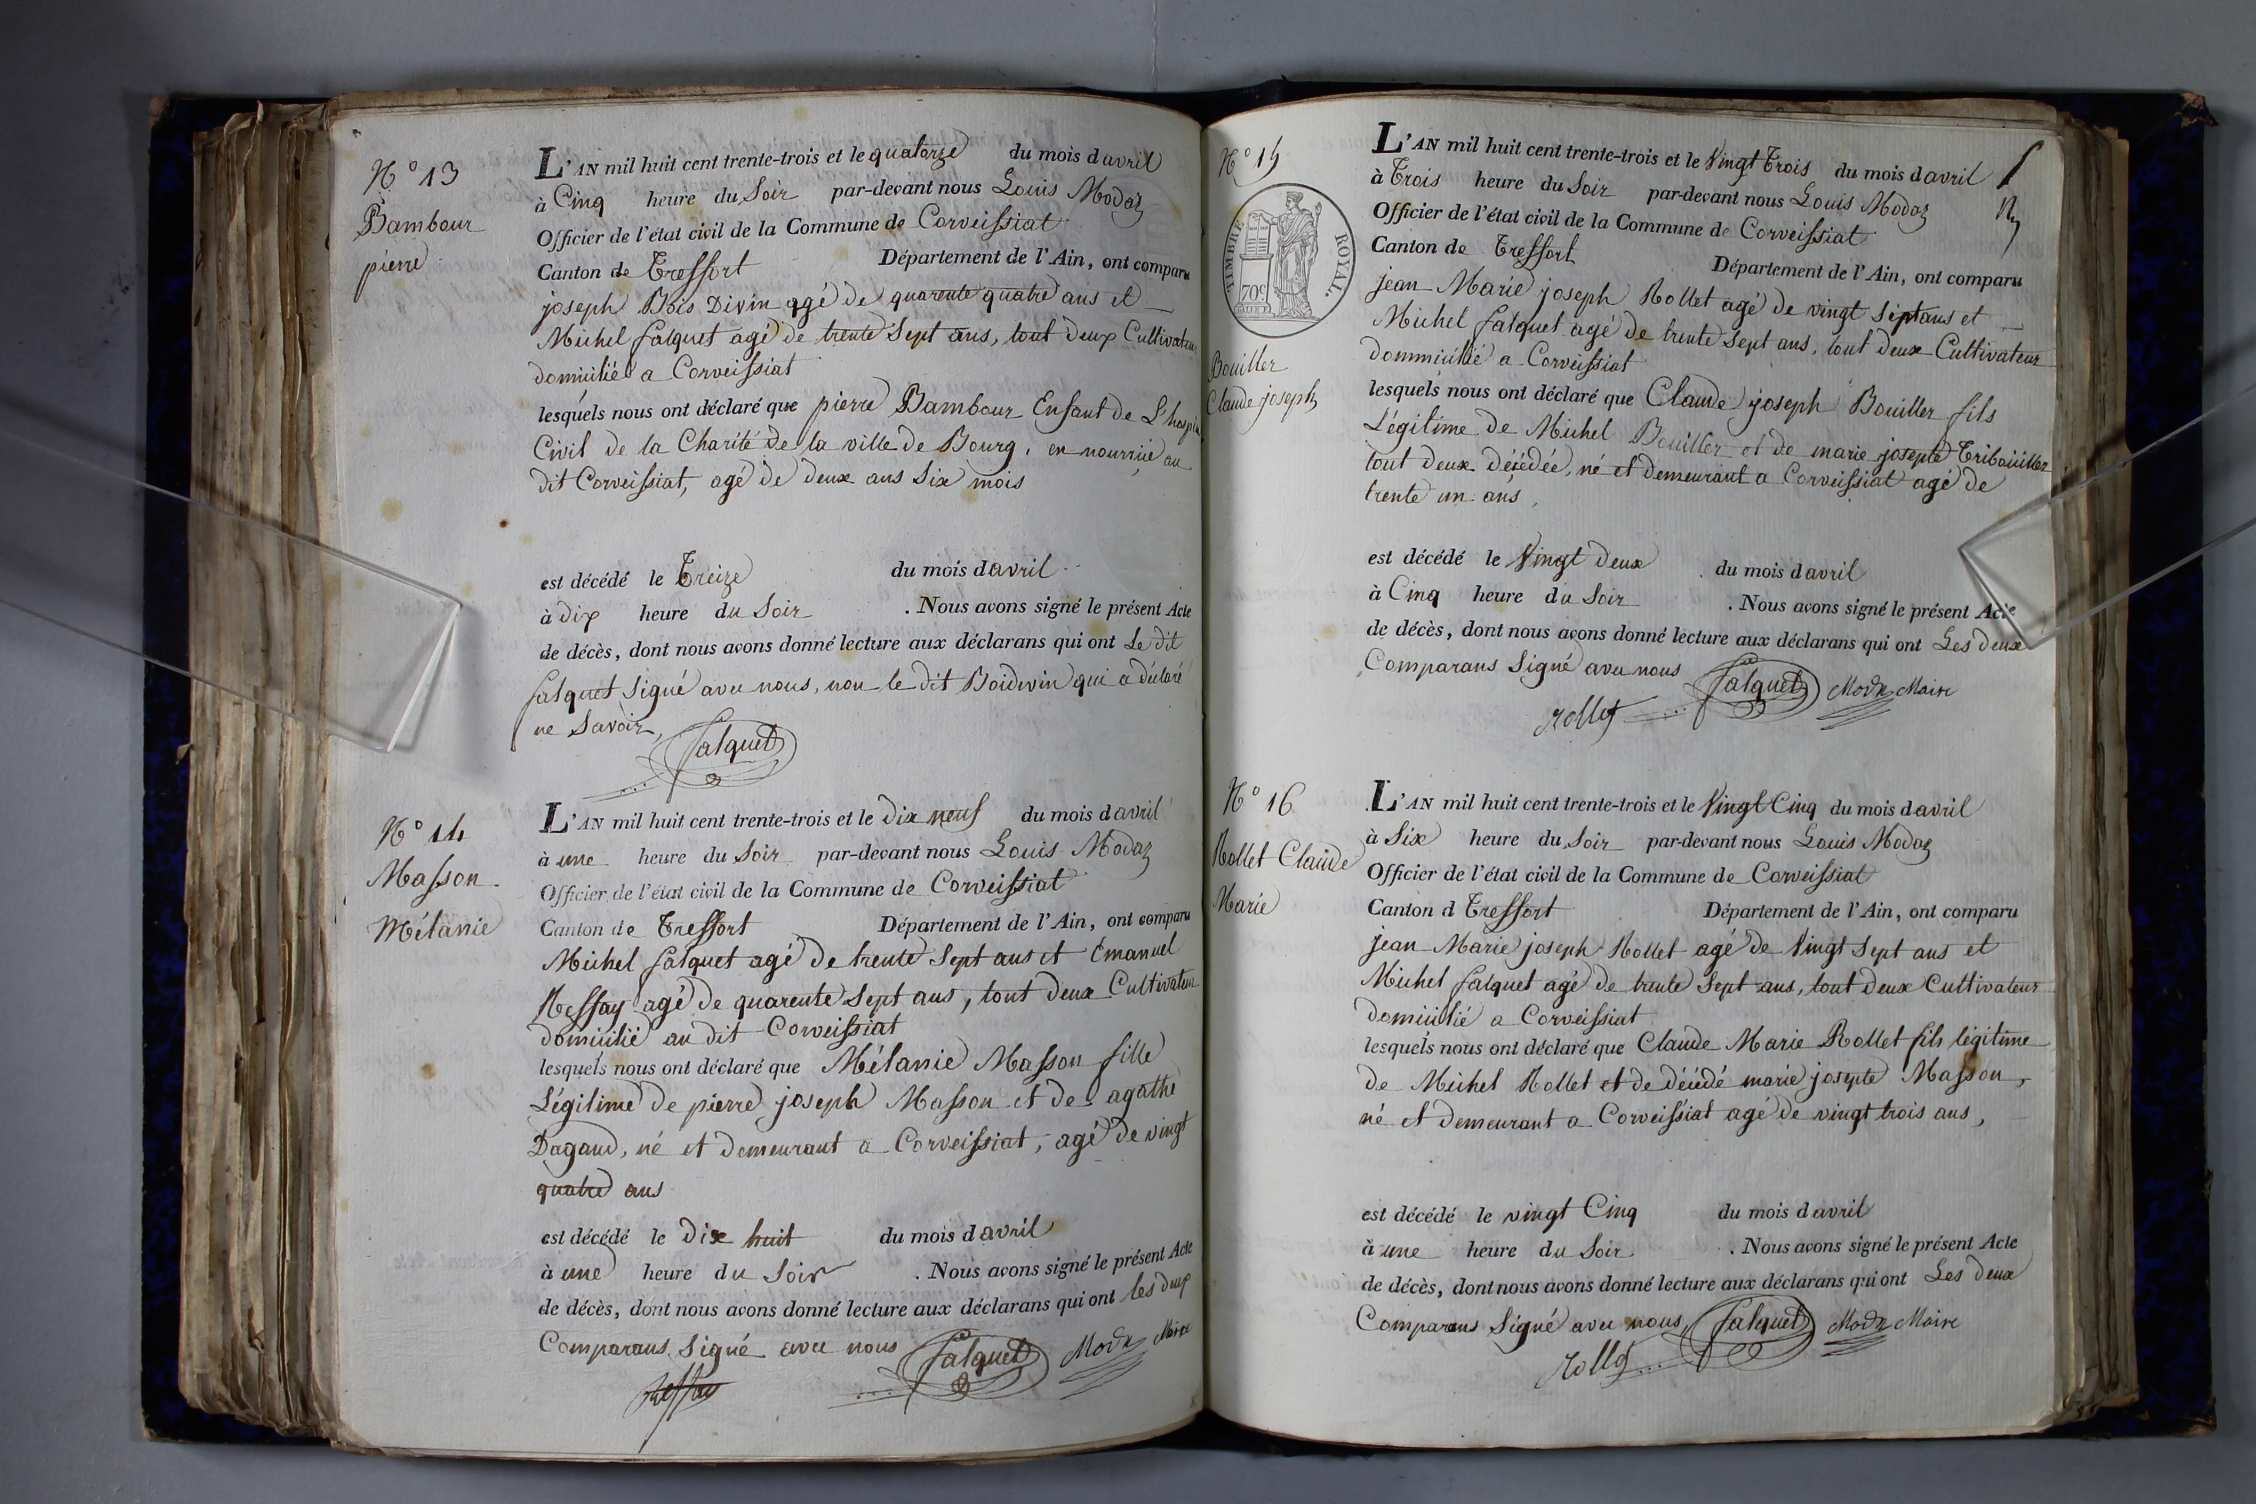 N° 13
Bambour
pierre
L'AN mil huit cent trente-trois et le quatorze du mois d avril
à Cinq heure du Soir par-devant nous Louis Modaz
Officier de l'état civil de la Commune de Corveissiat
Canton de Treffort Département de l'Ain, ont comparu
joseph Bois Divin agé de quarente quatre ans et
Michel falquet agé de trente Sept ans, tout deux Cultivateur
domicilié a Corveissiat
lesquels nous ont déclaré que pierre Bambour Enfant de L'hospice
Civil de la Charité de la ville de Bourg, en nourrice au
dit Corveissiat, agé de deux ans Six mois
est décédé le Treize du mois d avril
à dix heure du Soir . Nous avons signé le présent Acte
de décès, dont nous avons donné lecture aux déclarans qui ont Le dit
falquet Signé avec nous, non le dit Boidivin qui a déclaré
ne Savoir,
falquet
N° 14
Masson
Mélanie
L'AN mil huit cent trente-trois et le Dix neuf du mois d avril
à une heure du Soir par-devant nous Louis Modaz
Officier de l'état civil de la Commune de Corveissiat
Canton de Treffort Département de l'Ain, ont comparu
Michel falquet agé de trente Sept ans et Emanuel
Ressay agé de quarente Sept ans, tout deux Cultivateur
domicilié au dit Corveissiat
lesquels nous ont déclaré que Mélanie Masson fille
Légitime de pierre joseph Masson et de agathe
Dagaud, né et demeurant a Corveissiat, agé de vingt
quatre ans
est décédé le Dix huit du mois d avril
à une heure du Soir . Nous avons signé le présent Acte
de décès, dont nous avons donné lecture aux déclarans qui ont les deux
Comparans Signé avec nous falquet Modaz Maire
Ressay
N° 15
TIMBRE ROYAL.
70c
Bouiller
Claude joseph
L'AN mil huit cent trente-trois et le Vingt Trois du mois d avril
à Trois heure du Soir par-devant nous Louis Modaz
Officier de l'état civil de la Commune de Corveissiat
Canton de Treffort Département de l'Ain, ont comparu
jean Marie joseph Rollet agé de vingt Sept ans et
Michel falquet agé de trente Sept ans, tout deux Cultivateur
dommicilié a Corveissiat
lesquels nous ont déclaré que Claude joseph Bouiller fils
Légitime de Michel Bouiller et de marie josepte Tribouiller
tout deux décédée, né et demeurant a Corveissiat agé de
trente un ans,
est décédé le Vingt deux du mois d avril
à Cinq heure du Soir . Nous avons signé le présent Acte
de décès, dont nous avons donné lecture aux déclarans qui ont Les deux
Comparans Signé avec nous falquet Modaz Maire
rollet
N° 16
Rollet Claude
Marie
L'AN mil huit cent trente-trois et le Vingt Cinq du mois d avril
à Six heure du Soir par-devant nous Louis Modaz
Officier de l'état civil de la Commune de Corveissiat
Canton d Treffort Département de l'Ain, ont comparu
jean Marie joseph Rollet agé de Vingt Sept ans et
Michel falquet agé de trente Sept ans, tout deux Cultivateur
domicilié a Corveissiat
lesquels nous ont déclaré que Claude Marie Rollet fils légitime
de Michel Rollet et de décédé marie josepte Masson,
né et demeurant a Corveissiat agé de vingt trois ans,
est décédé le vingt Cinq du mois d avril
à une heure du Soir . Nous avons signé le présent Acte
de décès, dont nous avons donné lecture aux déclarans qui ont Les deux
Comparans Signé avec nous, falquet Modaz Maire
rollet